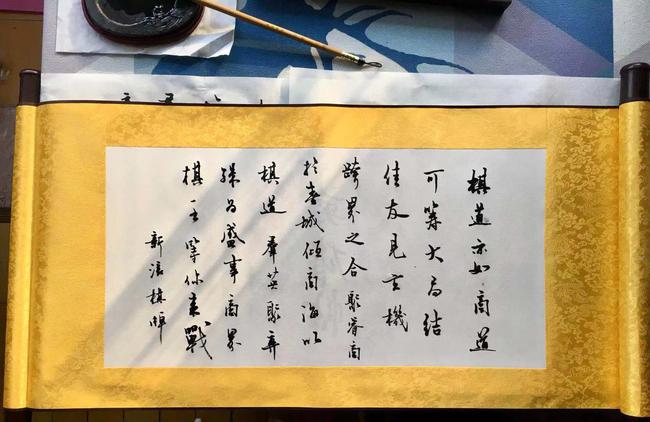 棋道亦如商道
可筹大局结
佳友見玄機
跨界之合聚睿商
於城倾商海以
棋道羣英聚弈
殊为盛事商界
棋王等你来戰
新浪棋牌